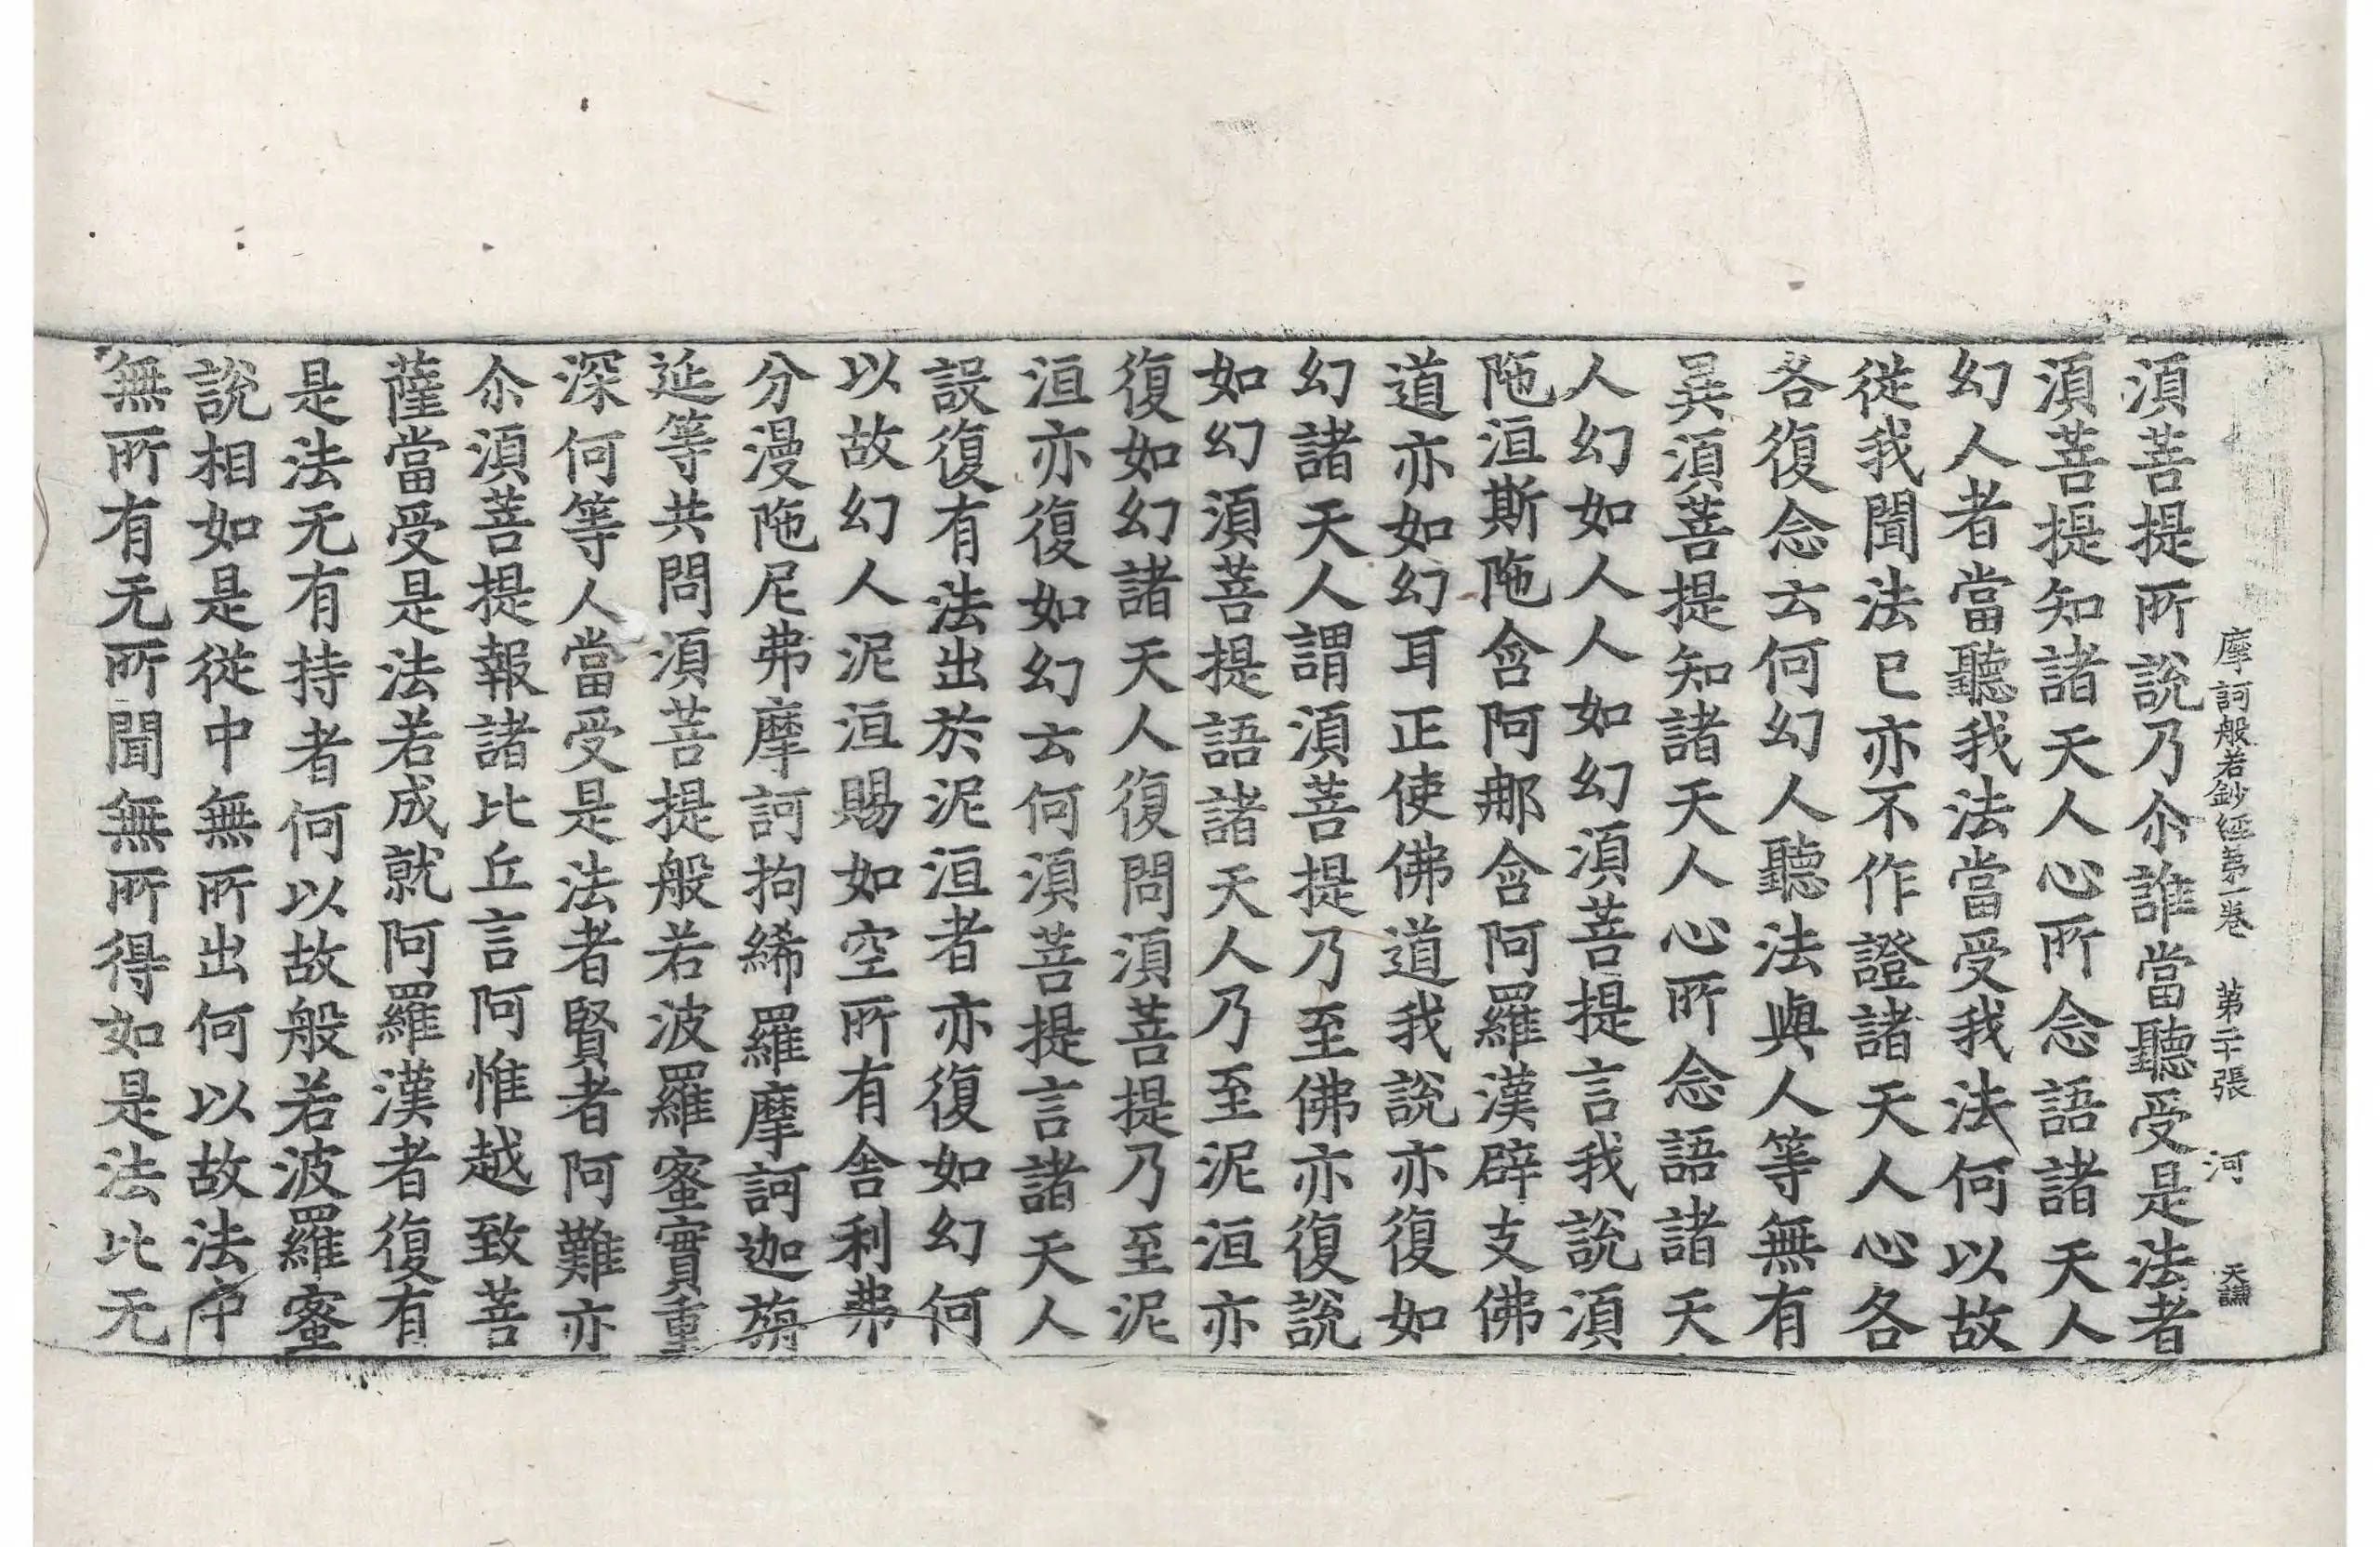 摩訶般若鈔經第一卷　第二十張　河　天譑
湏菩提所說乃尒誰當聽受是法者
湏菩提知諸天人心所念語諸天人
幻人者當聽我法當受我法何以故
從我聞法已亦不作證諸天人心各
各復念云何幻人聽法與人等無有
異湏菩提知諸天人心所念語諸天
人幻如人人如幻湏菩提言我說湏
陁洹斯陁含阿那含阿羅漢辟支佛
道亦如幻耳正使佛道我說亦復如
幻諸天人謂湏菩提乃至佛亦復說
如幻湏菩提語諸天人乃至泥洹亦
復如幻諸天人復問湏菩提乃至泥
洹亦復如幻云何湏菩提言諸天人
設復有法出於泥洹者亦復如幻何
以故幻人泥洹賜如空所有舍利弗
分漫陁尼弗摩訶拘絺羅摩訶迦旃
延等共問湏菩提般若波羅蜜實重
深何等人當受是法者賢者阿難亦
尒湏菩提報諸比丘言阿惟越致菩
薩當受是法若成就阿羅漢者復有
是法无有持者何以故般若波羅蜜
說相如是從中無所出何以故法中
無所有无所聞無所得如是法比无